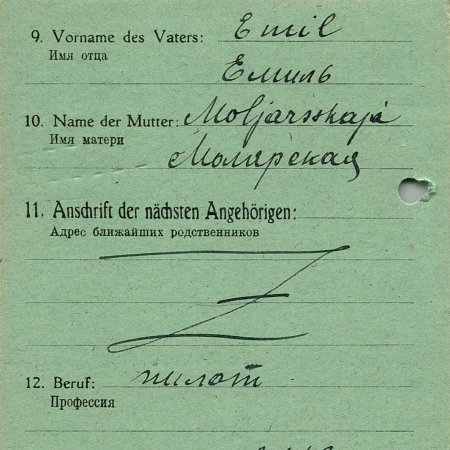 9. Vorname des Vaters: Emil
Имя отца
Емиль
10. Name der Mutter: Moljarsskaja
Имя матери
Молярская
11. Anschrift der nächsten Angehörigen:
Адрес ближайших родственников
12. Beruf: пилот
Профессия